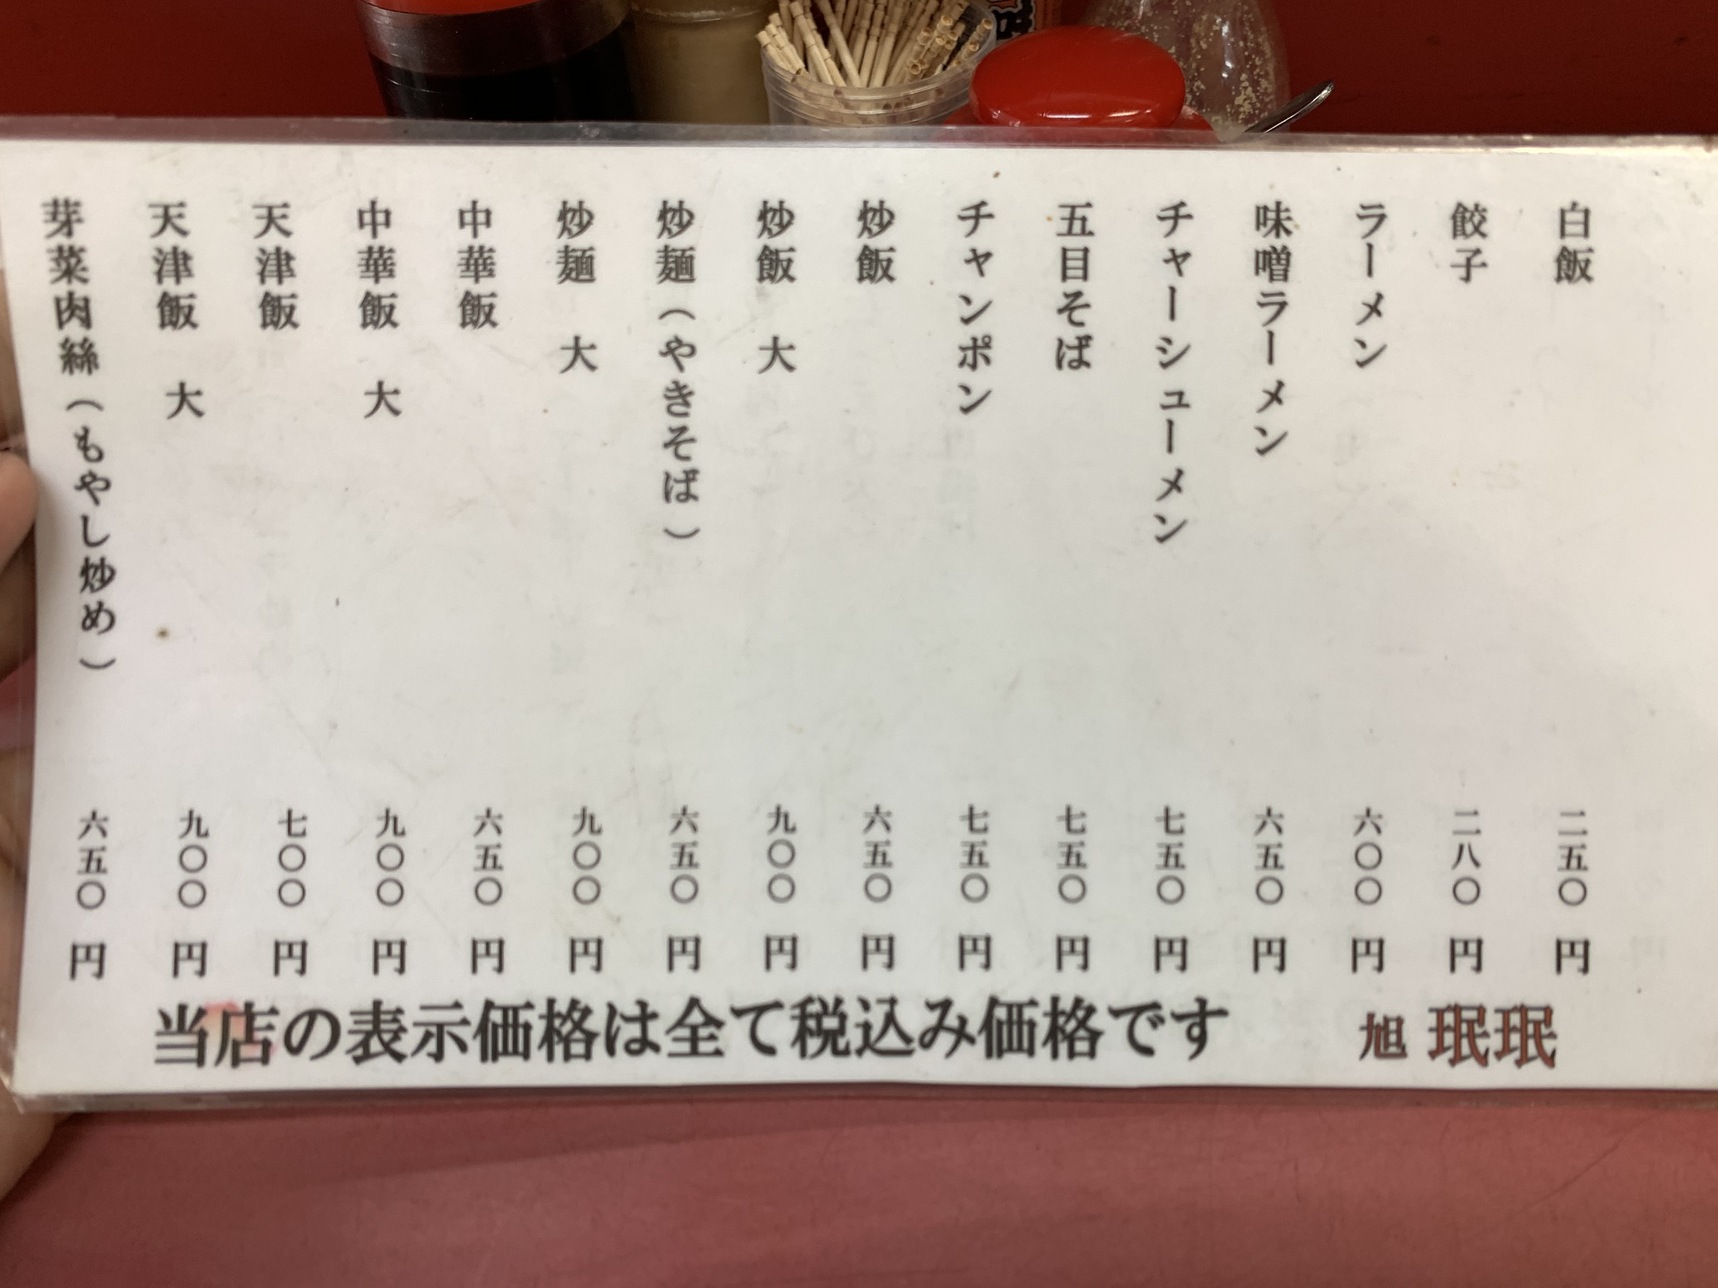 白飯 二五〇円
餃子 二八〇円
ラーメン 六〇〇円
味噌ラーメン 六五〇円
チャーシューメン 七五〇円
五目そば 七五〇円
チャンポン 七五〇円
炒飯 六五〇円
炒飯 大 九〇〇円
炒麺（やきそば） 六五〇円
炒麺 大 九〇〇円
中華飯 六五〇円
中華飯 大 九〇〇円
天津飯 七〇〇円
天津飯 大 九〇〇円
芽菜肉絲（もやし炒め） 六五〇円
当店の表示価格は全て税込み価格です 旭 珉珉
味